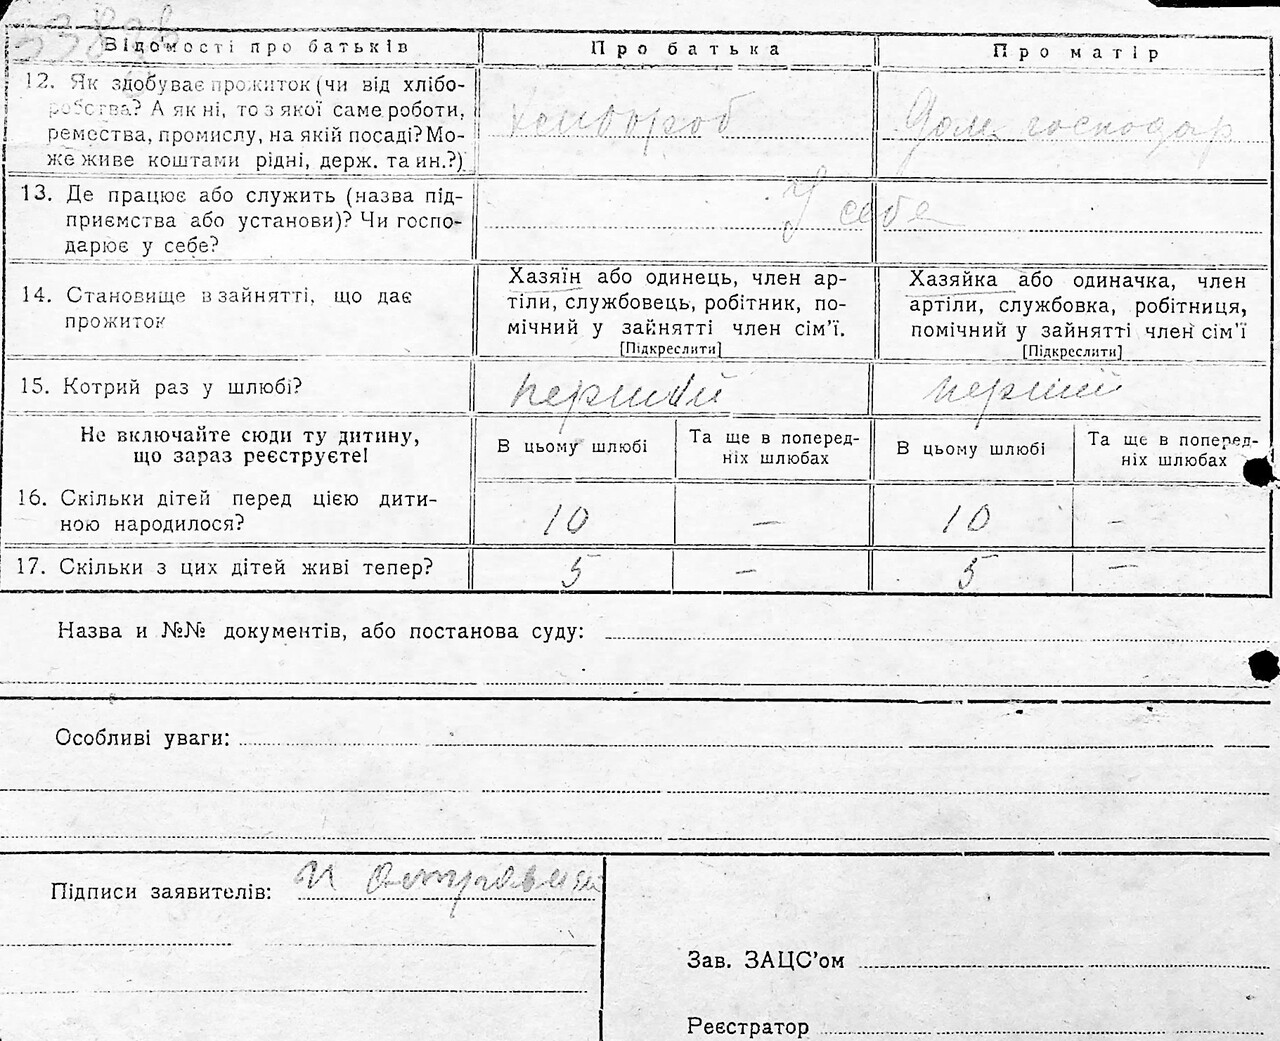 Відомості про батьків
Про батька
Про матір
12. Як здобуває прожиток (чи від хлібо-
робства? А як ні, то з якої саме роботи,
ремества, промислу, на якій посаді? Мо-
же живе коштами рідні, держ. та ин.?)
Хлібороб
Дом. господар
13. Де працює або служить (назва під-
приємства або установи)? Чи госпо-
дарює у себе?
У себе
14. Становище в зайнятті, що дає
прожиток
Хазяїн або одинець, член ар-
тіли, службовець, робітник, по-
мічний у зайнятті член сім'ї.
[Підкреслити]
Хазяйка або одиначка, член
артіли, службовка, робітниця,
помічний у зайнятті член сім'ї
[Підкреслити]
15. Котрий раз у шлюбі?
перший
перший
Не включайте сюди ту дитину,
що зараз реєструєте!
В цьому шлюбі
Та ще в поперед-
ніх шлюбах
В цьому шлюбі
Та ще в поперед-
ніх шлюбах
16. Скільки дітей перед цією дити-
ною народилося?
10
—
10
—
17. Скільки з цих дітей живі тепер?
5
—
5
—
Назва и №№ документів, або постанова суду:
Особливі уваги:
Підписи заявителів:
Зав. ЗАЦС'ом
Реєстратор